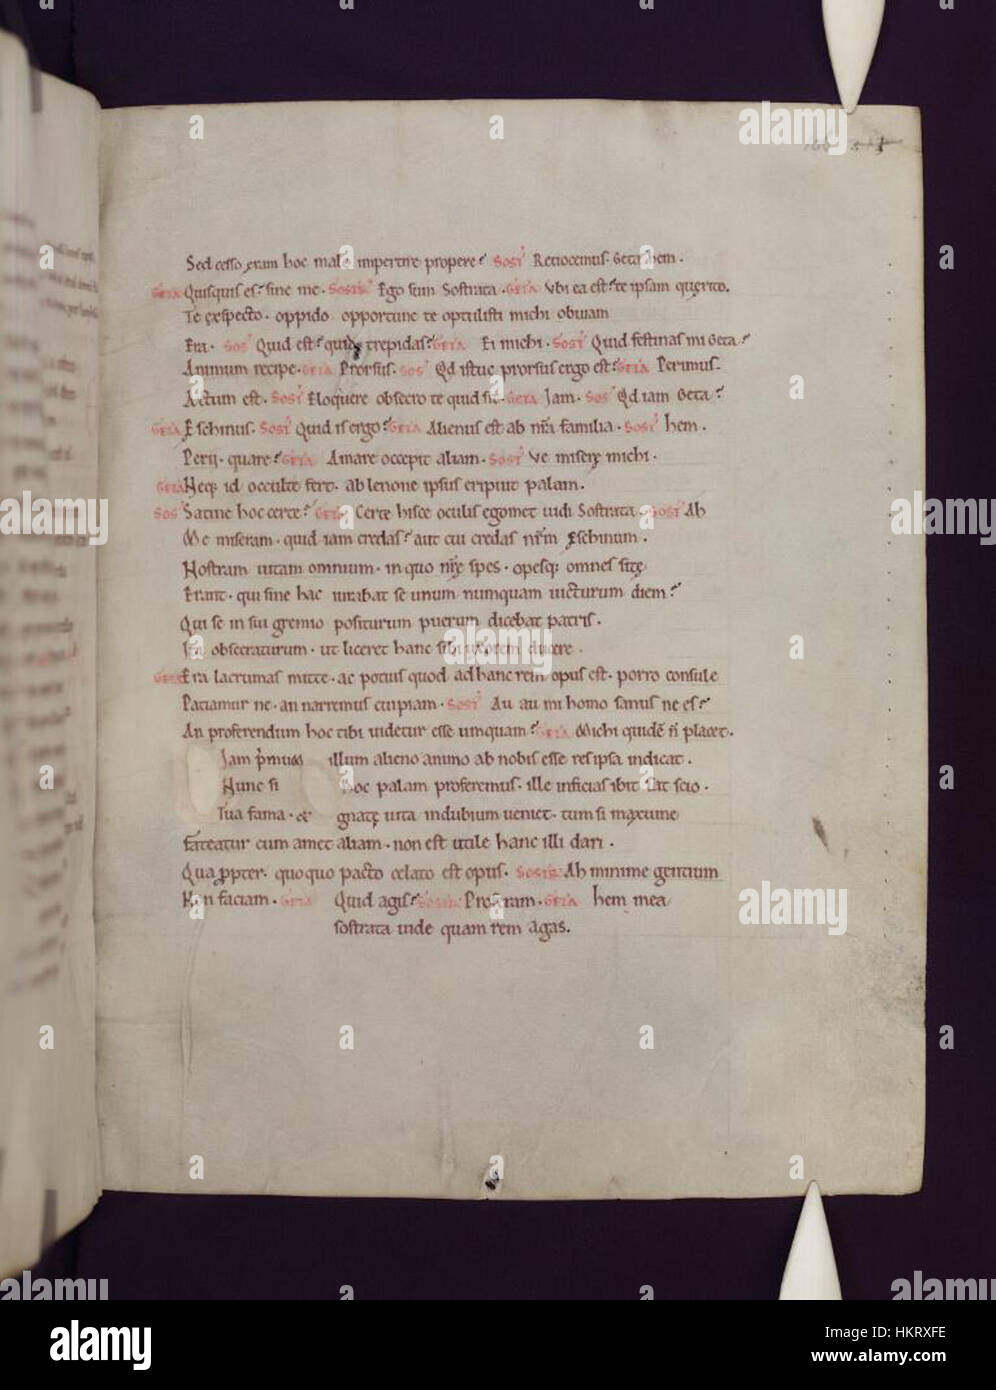 Sed cesso ęram hoc malū impertire propere? SOSĪ Retiocemus. Geta hem.
GETA Quisquis es? sine me. SOSTR̄ Ego sum Sostrata. GETA Vbi ea est? te ipsam quęrito.
Te ęxpecto. oppido opportune te optulisti michi obuiam
Era. SOS̄ Quid est? quid trepidas? GETA Ei michi. SOSĪ Quid festinas mi Geta?
Animum recipe. GETA Prorsus. SOS̄ Qd istuc prorsus ergo est? GETA Perimus.
Actum est. SOSĪ Eloquere obsecro te quid sit. GETA Jam. SOS̄ Qd iam Geta?
GETA Eschinus. SOSĪ Quid is ergo? GETA Alienus est ab nr̄a familia. SOSĪ hem.
Perij. quare? GETA Amare occepit aliam. SOSĪ Ve miserę michi.
GETA Neq; id occulte fert. ab lenone ipsus eripuit palam.
SOS̄ Satine hoc certe? GETA Certe hisce oculis egomet uidi Sostrata. SOSĪ Ah
Me miseram. quid iam credas? aut cui credas nr̄m Ęschinum.
Nostram uitam omnium. in quo nr̄ę spes. opesq; omnes sitę
Erant. qui sine hac iurabat se unum numquam uicturum diem?
Qui se in sui gremio positurum puerum dicebat patris.
Ita obsecraturum. ut liceret hanc sibi uxorem ducere.
GETA Era lacrimas mitte. ac potius quod ad hanc rem opus est. porro consule
Patiamur ne. an narremus cuipiam. SOSĪ Au au mi homo sanus ne es?
An proferendum hoc tibi uidetur esse umquam? GETA Michi quidē n̄ placet.
Jam p̄mum illum alieno animo ab nobis esse res ipsa indicat.
Nunc si hoc palam proferemus. ille inficias ibit sat scio.
Tua fama. et gnatę uita indubium ueniet. tum si maxume
fateatur cum amet aliam. non est utile hanc illi dari.
Qua ꝓpter. quoquo pacto celato est opus. SOSTR̄ Ah minime gentium
Non faciam. GETA Quid agis? SOSTR̄ Proferam. GETA hem mea
sostrata uide quam rem agas.
alamy
Image ID: HKRXFE
www.alamy.com